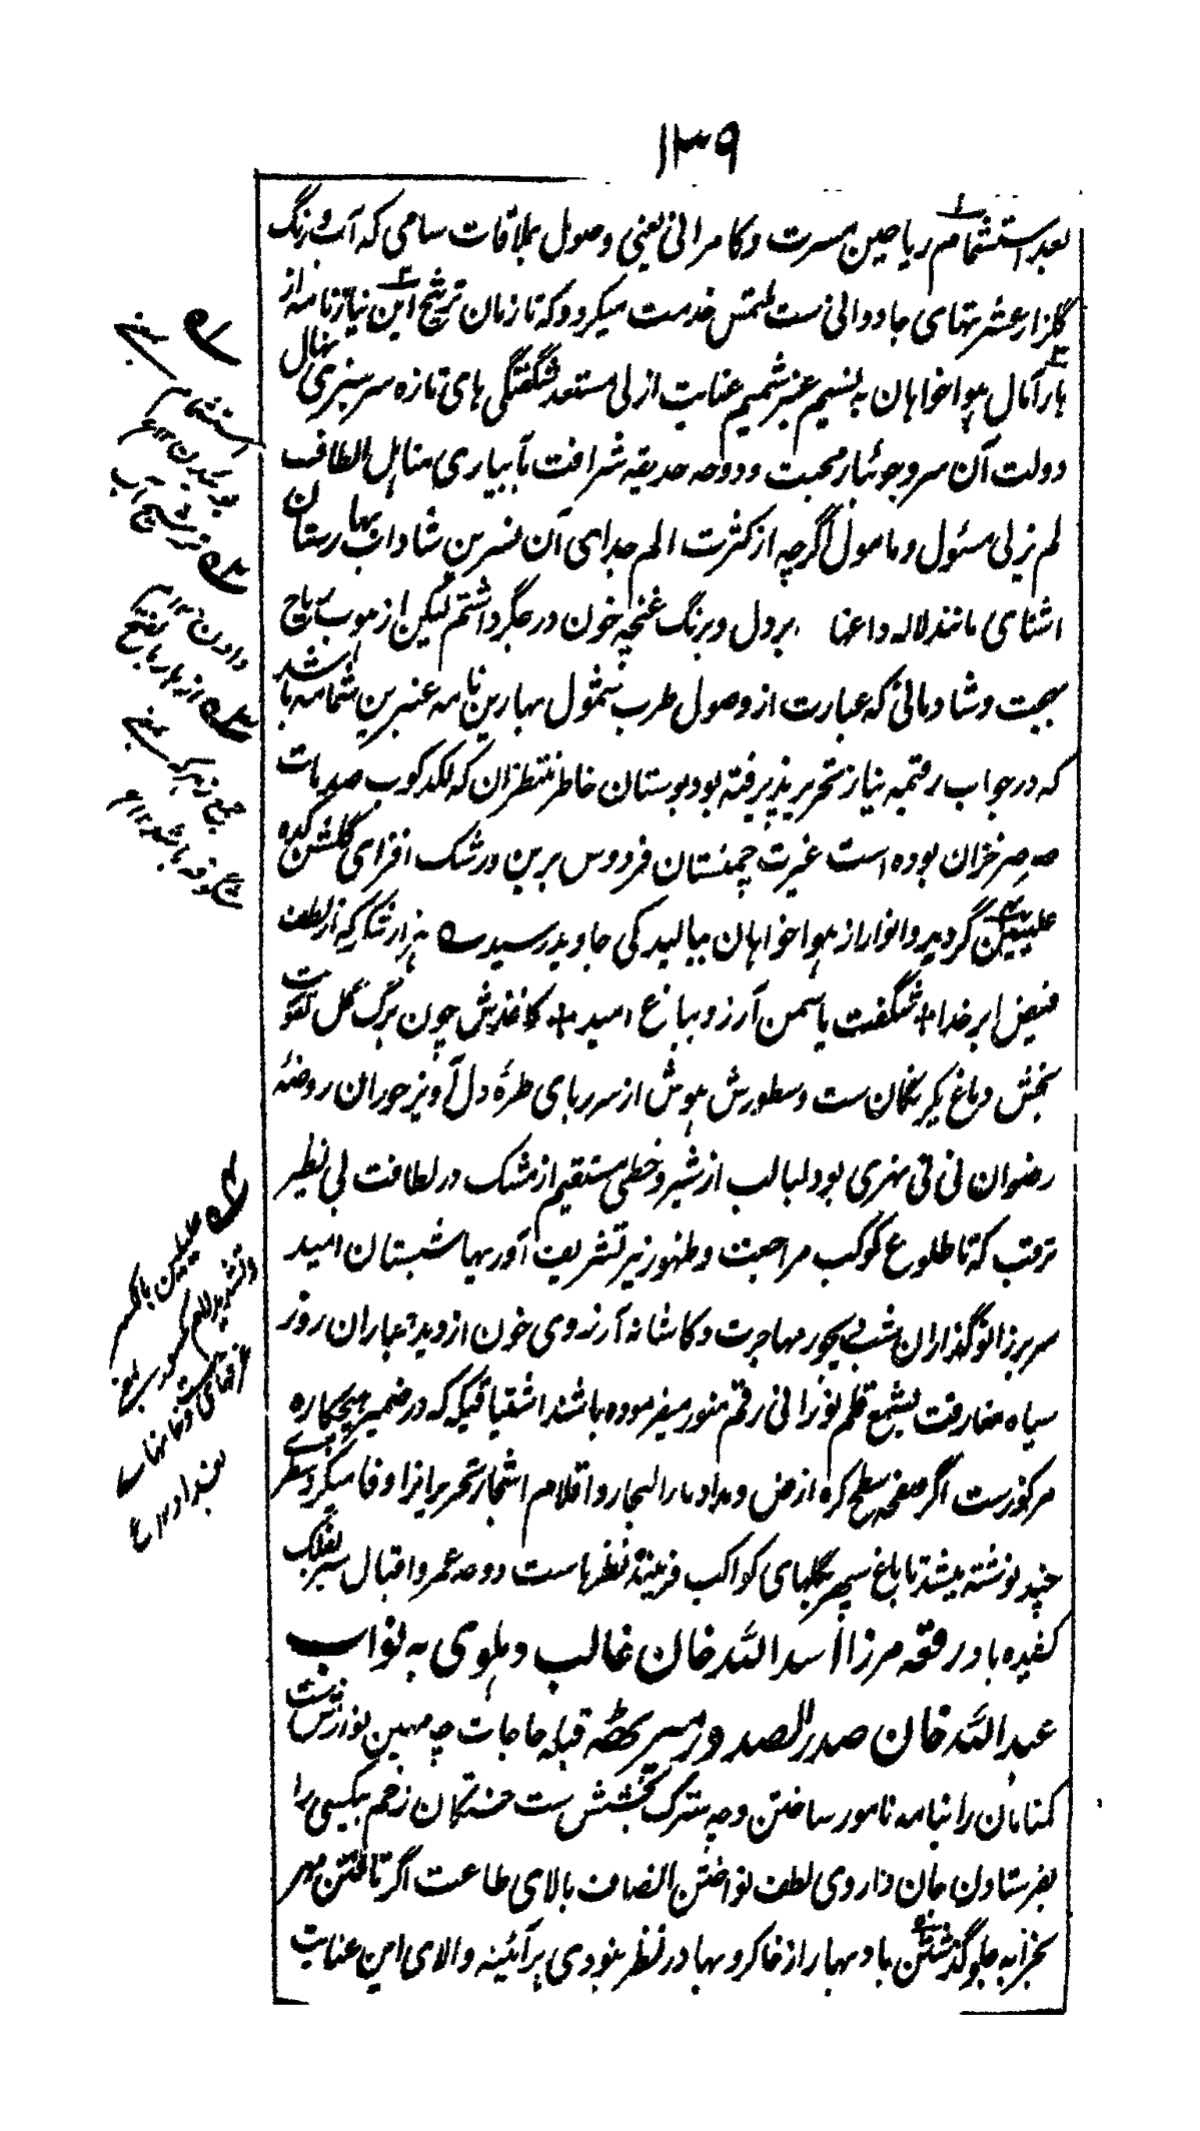 ۱۳۹
بعد استشمام ریاحین مسرت و کامرانی یعنی وصول ملاقات سامی که آب و رنگ
گلزار عشرتهای جاودانی ست ملتمس خدمت میگردد که تا زمان ترشیح این نیازنامه از
بار آمال هواخواهان به نسیم عنبر شمیم عنایت ازلی مستعد شگفتگی های تازه سرسبزی نهال
دولت آن سرو جوئبار محبت و دوحه حدیقه شرافت بآبیاری مناہل الطاف
لم یزلی مسئول و مامول اگرچه از کثرت الم جدای آن نسرین شاداب بهارستان
اشنای مانند لاله داعها بر دل و برنگ غنچه خون در جگر داشتم لیکن از هبوب ریاح
بهجت و شادمانی که عبارت از وصول طرب شمول بهارین نامه عنبرین شمامه باشد
که در جواب رقیمه نیاز تحریر پذیرفته بود بوستان خاطر منتظران که لکدکوب صدمات
صرصر خزان بوده است غیرت چمنستان فردوس برین و رشک افزای گلشن کده
علیین گردید و انوار از هواخواهان ببالیدکی جاوید رسید ہزار شکر که از لطف
فیض ابر خدا + شگفت یاسمن آرزو بباغ امید + کاغذش چون برگ گل نکهت
بخش دماغ یکرنگان ست و سطورش هوش از سر ربای طرهٔ دل آویز حوران روضهٔ
رضوان نی نی نهری بود لبالب از شیر و خطی مستقیم از مشک در لطافت بی نظیر
ترقب که تا طلوع کوکب مراجعت و ظهور نیر تشریف آوریها شبستان امید
سر برزانو گذاران شب دیجور مهاجرت و کاشانه آرزوی خون از دیده باران روز
سیاه مفارقت بشمع قلم نورانی رقم منور میفرموده باشند اشتیاقیکه در ضمیر هیچکاره
مرکوز ست اگر صفحه سطح کره ارض و مداد ماء البحار و اقلام اشجار تحریر ایزا وفا میکرد سطری
چند نوشته میشد تا باغ سپهر بگلهای کواکب فریبنده نظرهاست دوحه عمر و اقبال سر بفلک
کشیده باد رقعه مرزا اسد اللہ خان غالب دہلوی به نواب
عبد اللہ خان صدر الصدور میرٹھہ قبله حاجات چه مهین نوازش ست
گمنامان را بنامه نامور ساختن و چه سترگ بخشش ست خستگان زخم بیکسی را
بفرستادن جان داروی لطف نواختن انصاف بالای طاعت اگر تافتن مهر
بخرابه و گذشتن باد بهار از خاکروبها در نظر نبودی ہر آئینه والای این عنایت
۱ه
استشمام بمعنے
بو ئیدن ۱۲ ع
۲ه ترشیح آب
دادن ۱۲
۳ه ازہار بالفتح
جمع زہر کہ بمعنے
شگوفہ باشد ۱۲ ع
۴ه علیین بالکسر